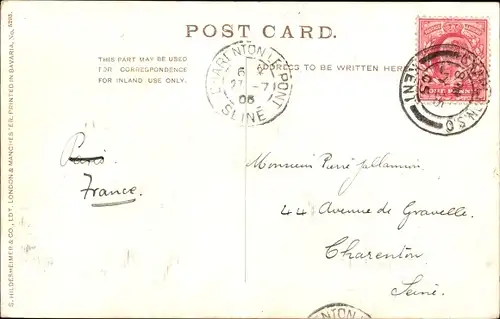 POST CARD.
THIS PART MAY BE USED
FOR CORRESPONDENCE
FOR INLAND USE ONLY.
ADDRESS TO BE WRITTEN HERE
CHARENTON LE PONT
6
27 -7
06
SEINE
ONE PENNY
KENT
Paris
France.
Monsieur Pierre
44 Avenue de Gravelle.
Charenton
Seine.
S. HILDESHEIMER & CO., LDT. LONDON & MANCHESTER. PRINTED IN BAVARIA, No. 5298.
ENTON L